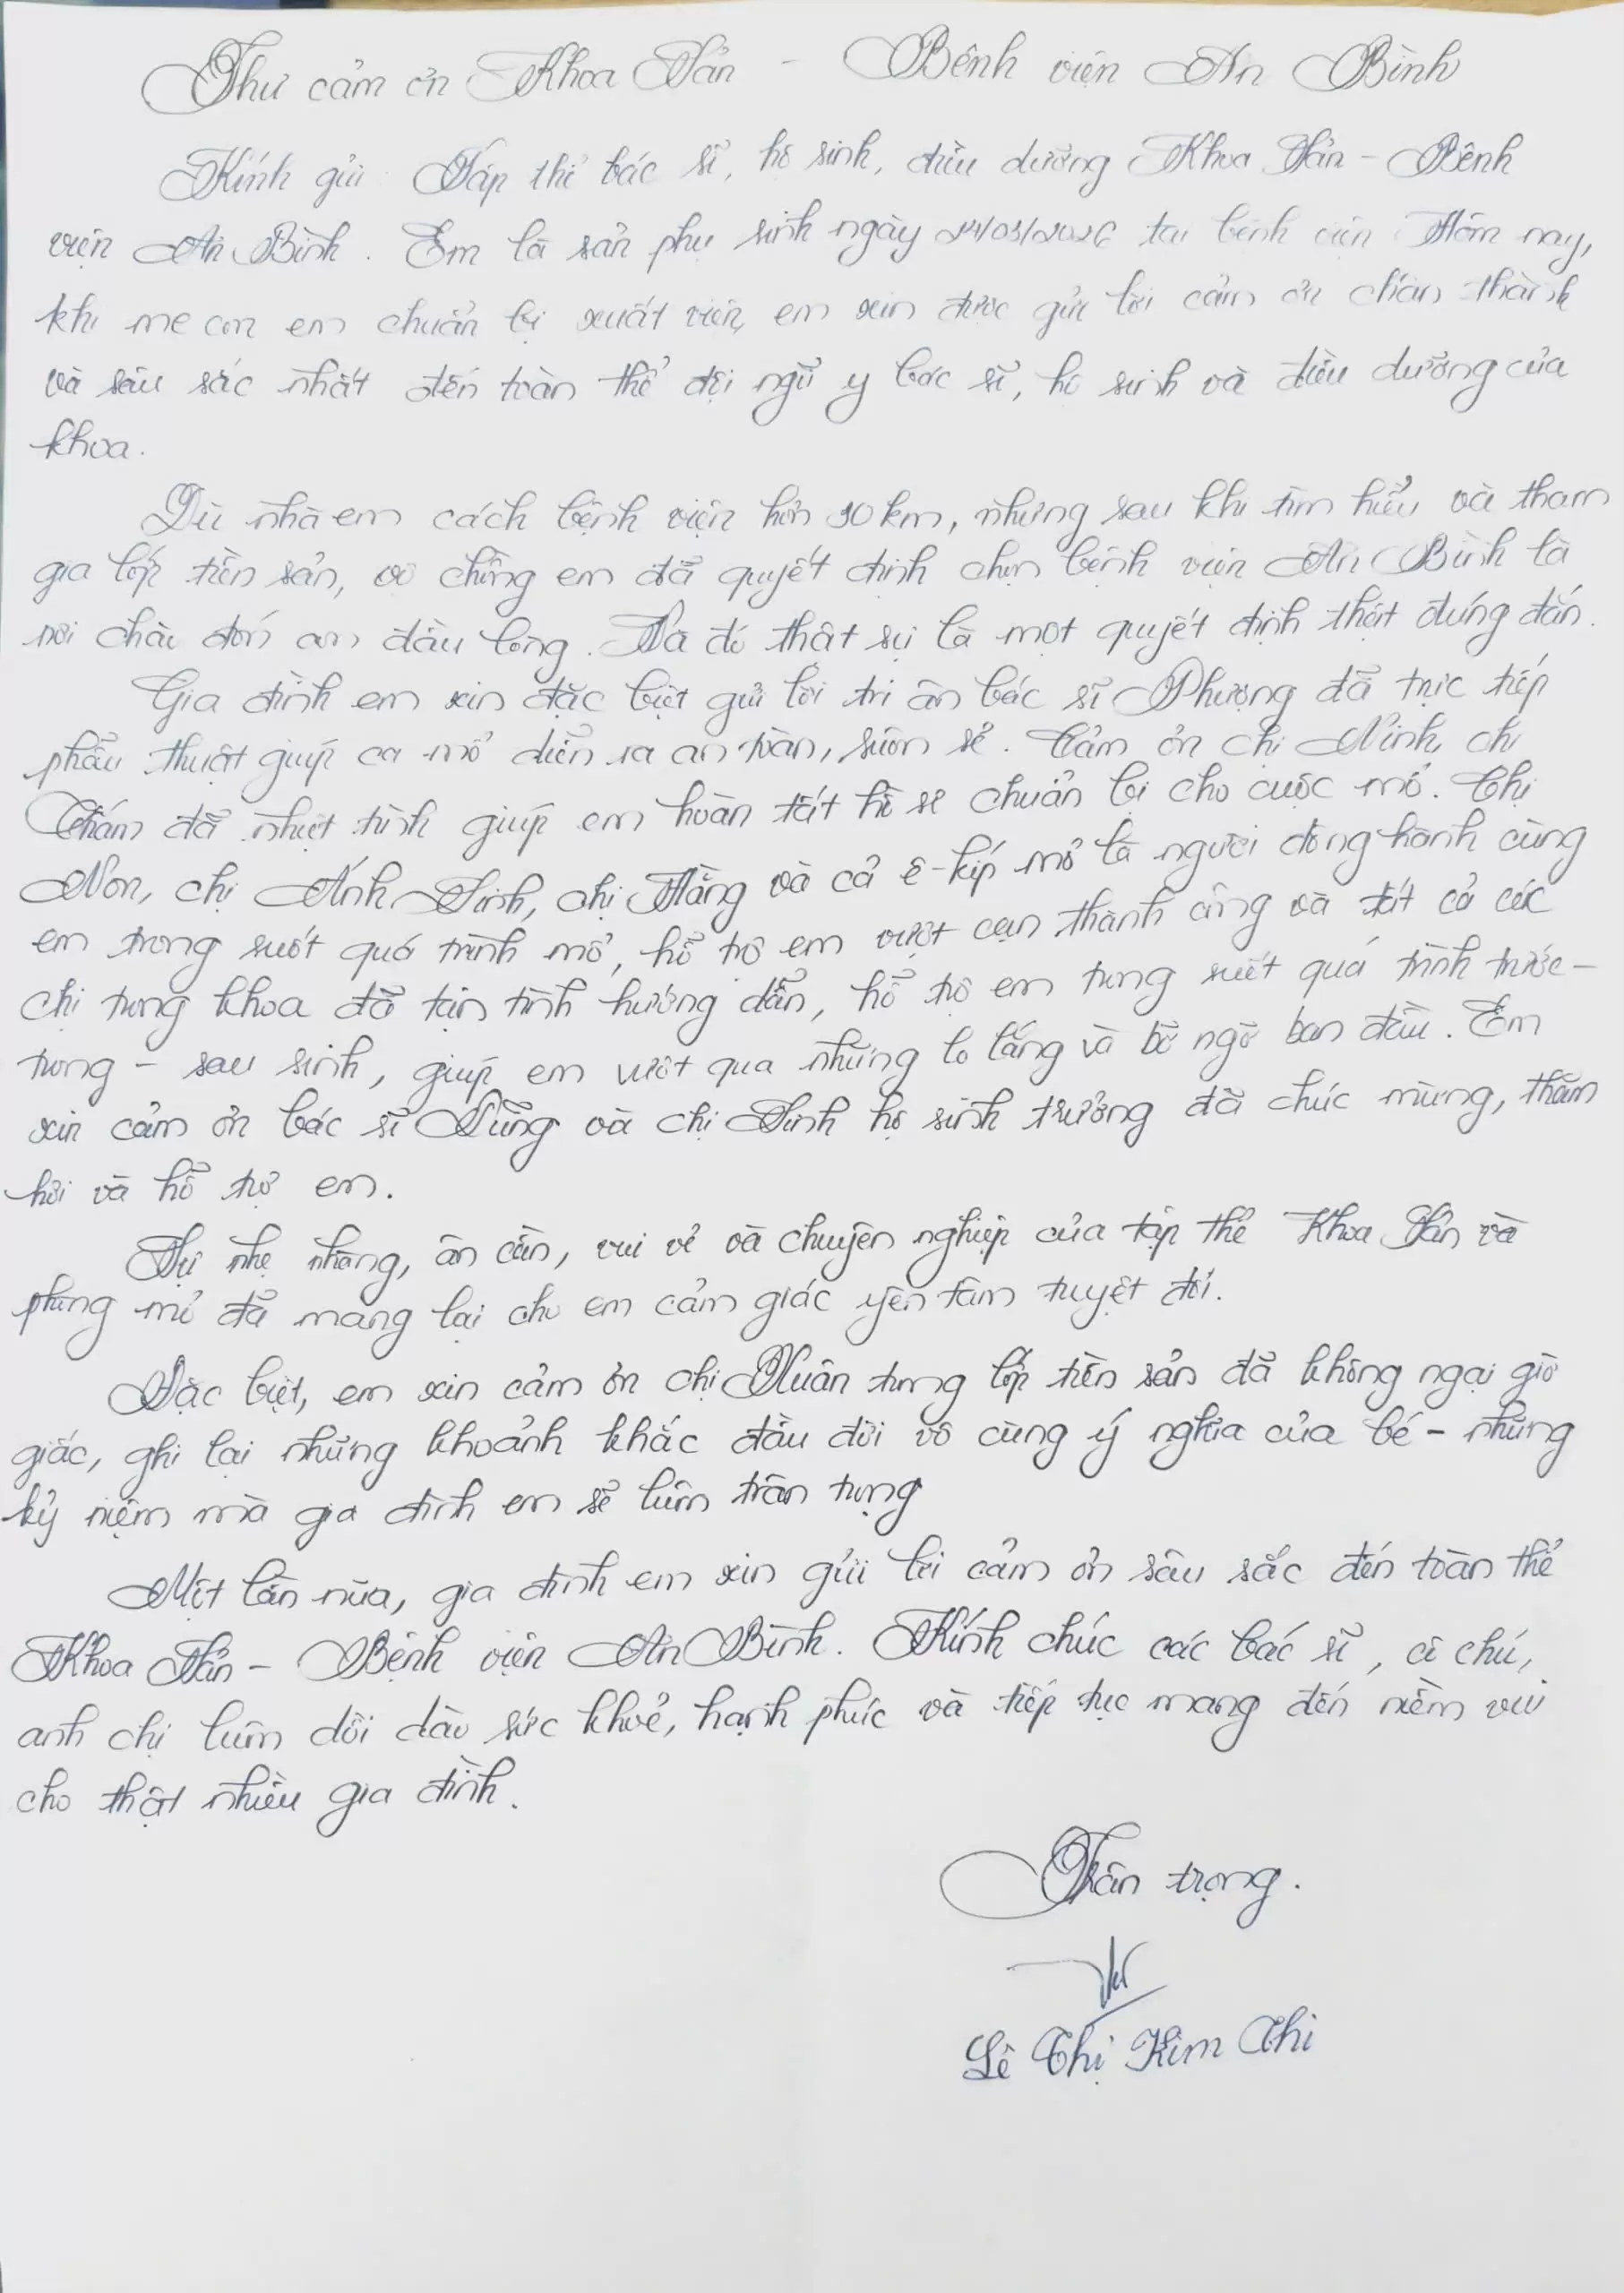 Thư cảm ơn Khoa Sản - Bệnh viện An Bình
Kính gửi: Tập thể bác sĩ, hộ sinh, điều dưỡng Khoa Sản - Bệnh
viện An Bình. Em là sản phụ sinh ngày tại bệnh viện. Hôm nay,
khi mẹ con em chuẩn bị xuất viện, em xin được gửi lời cảm ơn chân thành
và sâu sắc nhất đến toàn thể đội ngũ y bác sĩ, hộ sinh và điều dưỡng của
khoa.
Dù nhà em cách bệnh viện hơn km, nhưng sau khi tìm hiểu và tham
gia lớp tiền sản, vợ chồng em đã quyết định chọn bệnh viện An Bình là
nơi chào đón con đầu lòng. Và đó thật sự là một quyết định thật đúng đắn.
Gia đình em xin đặc biệt gửi lời tri ân bác sĩ Phượng đã trực tiếp
phẫu thuật giúp ca mổ diễn ra an toàn, suôn sẻ. Cảm ơn chị Ninh, chị
Thắm đã nhiệt tình giúp em hoàn tất hồ sơ chuẩn bị cho cuộc mổ. Chị
Non, chị Ánh Sinh, chị Hằng và cả ê-kíp mổ là người đồng hành cùng
em trong suốt quá trình mổ, hỗ trợ em vượt cạn thành công và tất cả các
chị trong khoa đã tận tình hướng dẫn, hỗ trợ em trong suốt quá trình trước -
trong - sau sinh, giúp em vượt qua những lo lắng và bỡ ngỡ ban đầu. Em
xin cảm ơn bác sĩ và chị Sinh hộ sinh trưởng đã chúc mừng, thăm
hỏi và hỗ trợ em.
Sự nhẹ nhàng, ân cần, vui vẻ và chuyên nghiệp của tập thể Khoa Sản và
phòng mổ đã mang lại cho em cảm giác yên tâm tuyệt đối.
Đặc biệt, em xin cảm ơn chị Xuân trong lớp tiền sản đã không ngại giờ
giấc, ghi lại những khoảnh khắc đầu đời vô cùng ý nghĩa của bé - những
kỷ niệm mà gia đình em sẽ luôn trân trọng
Một lần nữa, gia đình em xin gửi lời cảm ơn sâu sắc đến toàn thể
Khoa Sản - Bệnh viện An Bình. Kính chúc các bác sĩ, cô chú,
anh chị luôn dồi dào sức khoẻ, hạnh phúc và tiếp tục mang đến niềm vui
cho thật nhiều gia đình.
Trân trọng.
Lê Thị Kim Thi